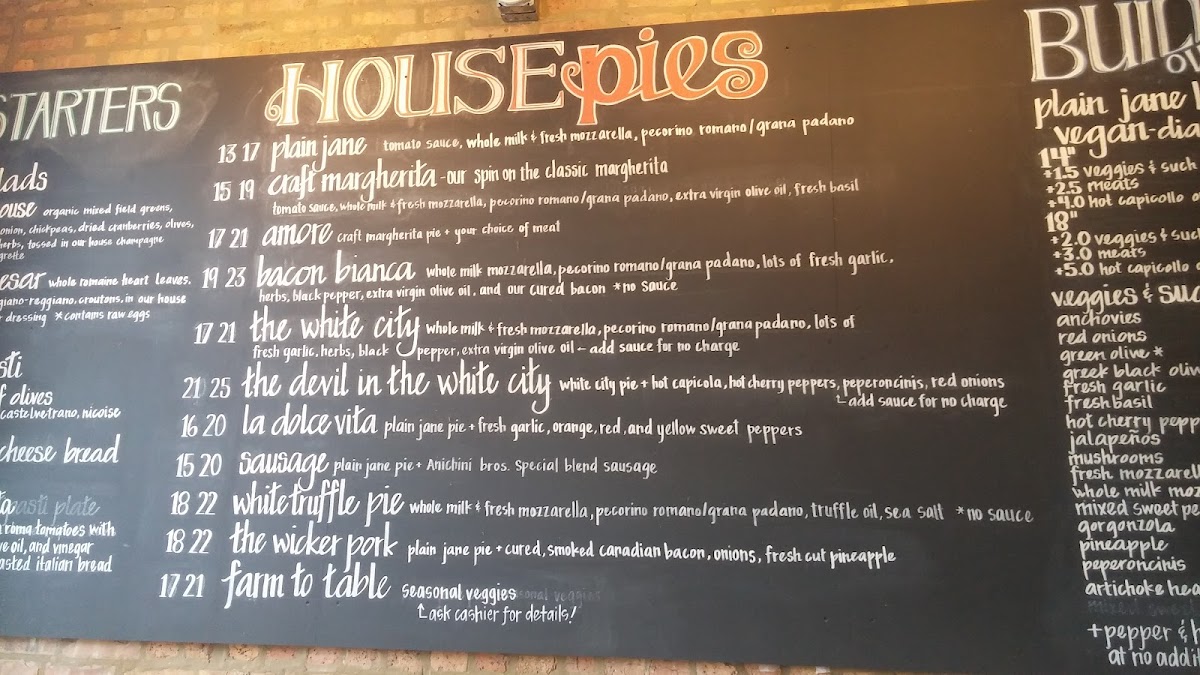 STARTERS
house organic mixed field greens,
onion, chickpeas, dried cranberries, olives,
herbs, tossed in our house champagne
whole romaine heart leaves,
croutons, in our house
dressing *contains raw eggs
of olives
castelvetrano, nicoise
cheese bread
plate
roma tomatoes with
oil, and vinegar
italian bread
HOUSE pies
13 17 plain jane tomato sauce, whole milk & fresh mozzarella, pecorino romano/grana padano
15 19 craft margherita - our spin on the classic margherita
tomato sauce, whole milk & fresh mozzarella, pecorino romano/grana padano, extra virgin olive oil, fresh basil
17 21 amore craft margherita pie + your choice of meat
19 23 bacon bianca whole milk mozzarella, pecorino romano/grana padano, lots of fresh garlic,
herbs, black pepper, extra virgin olive oil, and our cured bacon *no sauce
17 21 the white city whole milk & fresh mozzarella, pecorino romano/grana padano, lots of
fresh garlic, herbs, black pepper, extra virgin olive oil - add sauce for no charge
21 25 the devil in the white city white city pie + hot capicola, hot cherry peppers, peperoncinis, red onions
add sauce for no charge
16 20 la dolce vita plain jane pie + fresh garlic, orange, red, and yellow sweet peppers
15 20 sausage plain jane pie + Anichini bros. special blend sausage
18 22 white truffle pie whole milk & fresh mozzarella, pecorino romano/grana padano, truffle oil, sea salt *no sauce
18 22 the wicker park plain jane pie + cured, smoked canadian bacon, onions, fresh cut pineapple
17 21 farm to table seasonal veggies
ask cashier for details!
plain jane
14"
+1.5 veggies & such
+2.5 meats
+4.0 hot capicollo
18"
+2.0 veggies & such
+3.0 meats
+5.0 hot capicollo
veggies &
anchovies
red onions
green olive *
greek black
fresh garlic
fresh basil
hot cherry
jalapeños
mushrooms
fresh
whole milk
mixed sweet
gorgonzola
pineapple
peperoncinis
artichoke
+ pepper &
at no